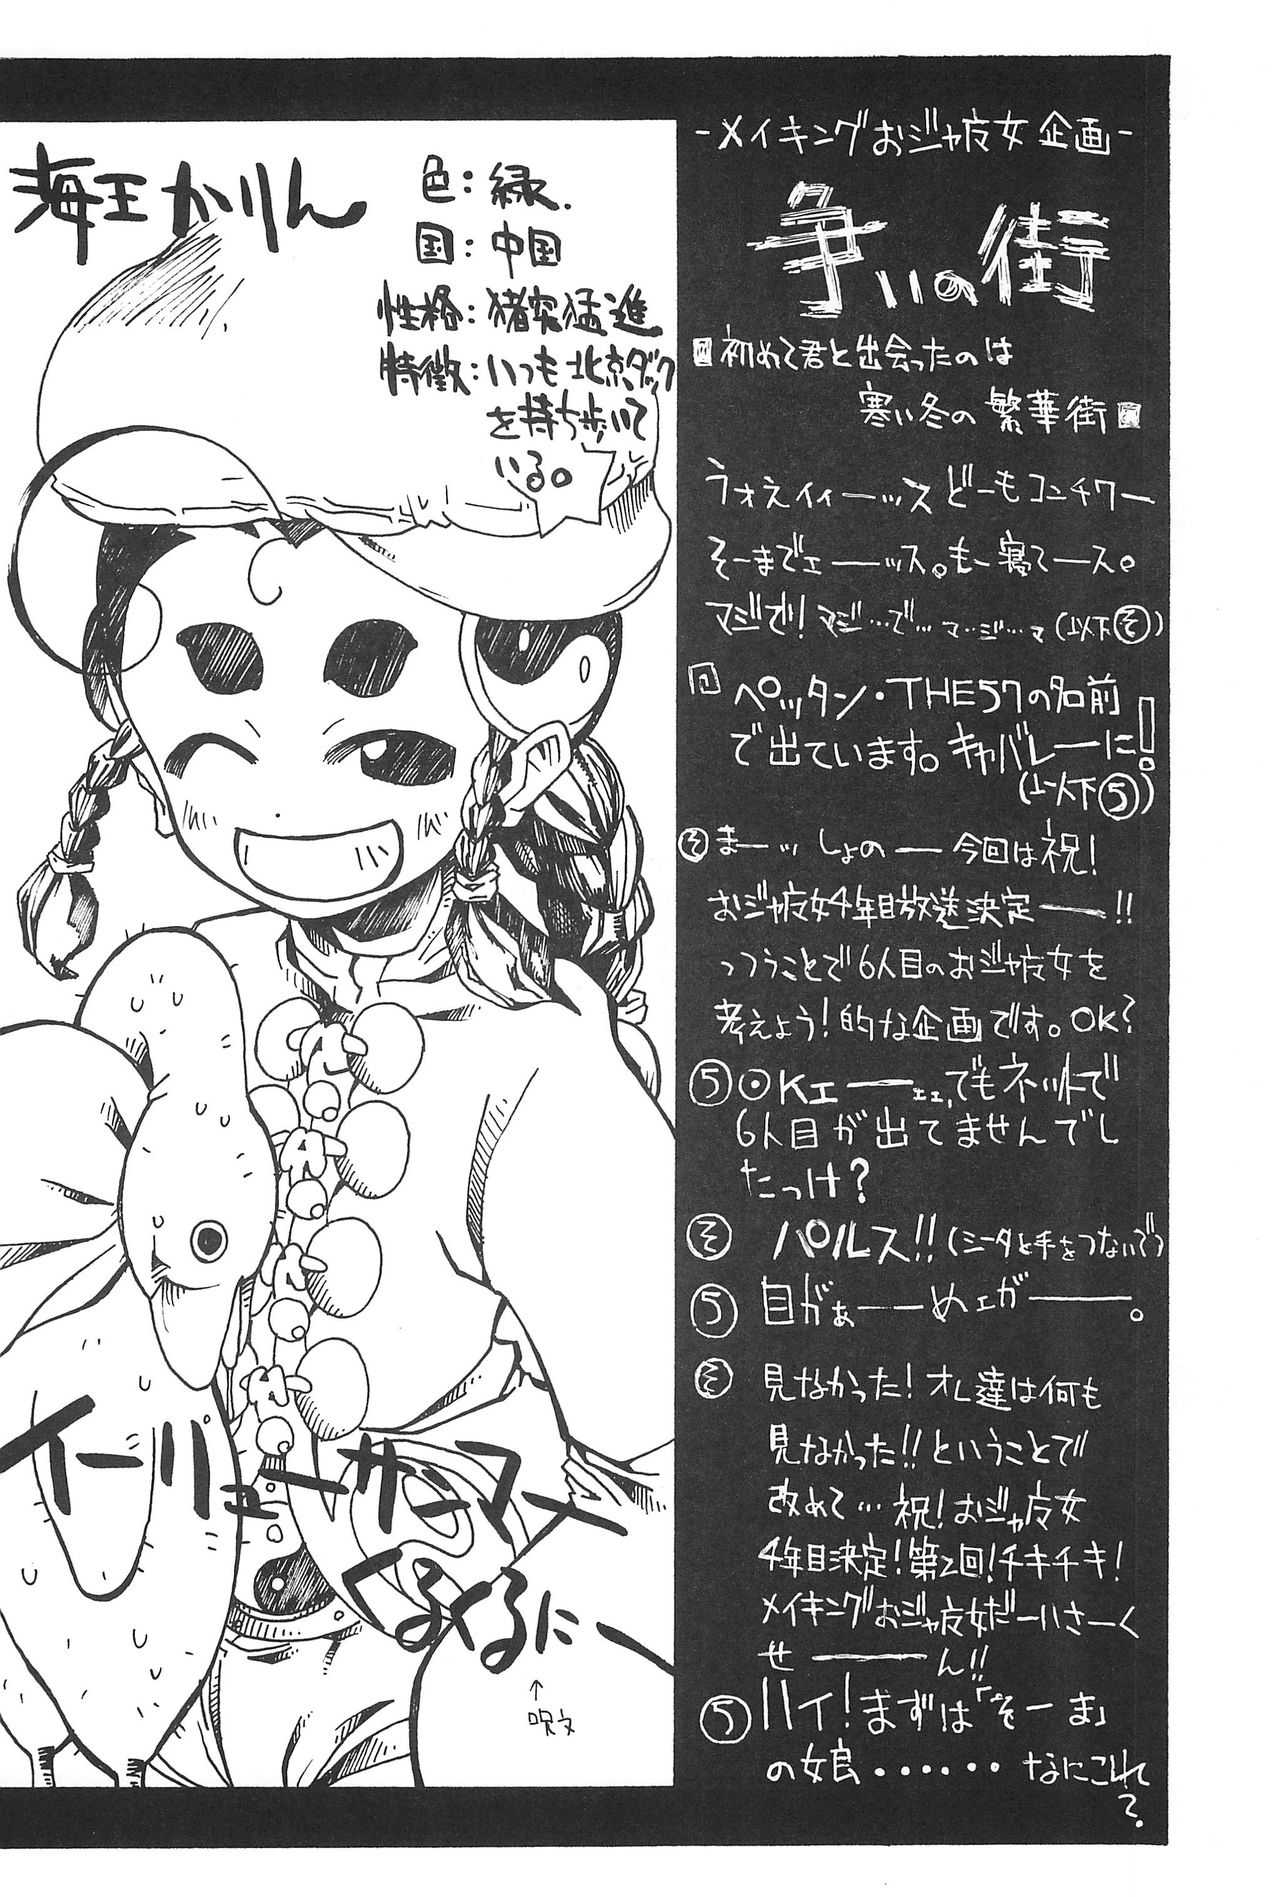 -メイキングおジャ魔女企画-
争いの街
初めて君と出会ったのは
寒い冬の繁華街
うォえイィーッス どーもコンチワー
そーまでェーッス。もー寝てース。
マジで!マジ…で…マ…ジ…マ(以下そ)
ペッタン・THE57の名前
で出ています。キャバレーに!
(以下5)
そ まーッしょのー今回は祝!
おジャ魔女4年目放送決定ー!!
っつうことで6人目のおジャ魔女を
考えよう!的な企画です。OK?
5 OKェーェェ,でもネットで
6人目が出てませんでし
たっけ?
そ バルス!!(シータと手をつないで)
5 目がぁーーめェがーー。
そ 見なかった!オレ達は何も
見なかった!!ということで
改めて…祝!おジャ魔女
4年目決定!第2回!チキチキ!
メイキングおジャ魔女だーいさーく
せーーん!!
5 ハイ!まずは「そーま」
の娘・・・・・・なにこれ
?
海王かりん
色:緑.
国:中国
性格:猪突猛進
特徴:いつも北京ダック
を持ち歩いて
いる。
イーパェーサンフー
くるくるにー
↑
呪文